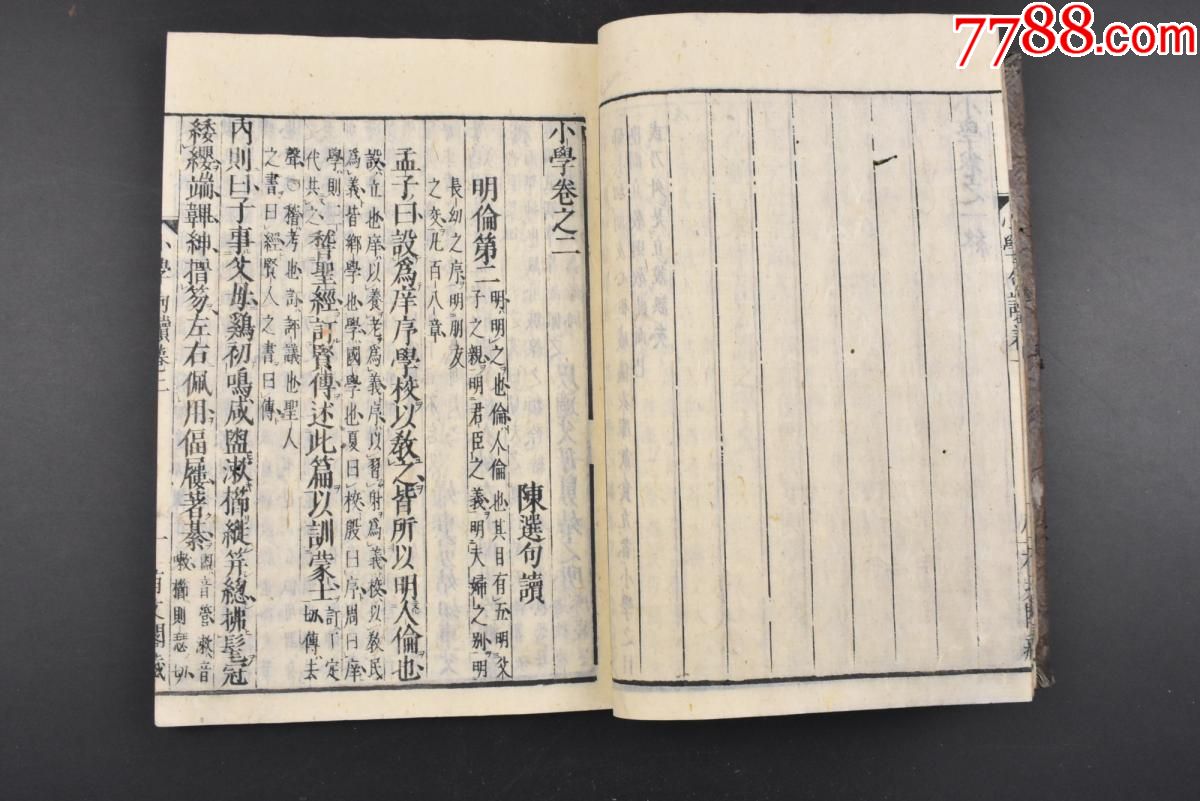 7788.com
小學卷之二
陳選句讀
明倫第二
明明之也倫人倫也其目有五明父
子之親明君臣之義明夫婦之別明
長幼之序明朋友
之交凡百八章
孟子曰設爲庠序學校以教之皆所以明人倫也
設立也庠以養老爲義序以習射爲義校以教民
爲義皆鄉學也學國學也夏曰校殷曰序周曰庠
學則三
代共之
稽聖經訂賢傳述此篇以訓蒙士
訂定
傳去
聲○稽考也訂評議也聖人
之書曰經賢人之書曰傳
內則曰子事父母雞初鳴咸盥漱櫛縰笄總拂髦冠
緌纓端韠紳搢笏左右佩用偪屨著綦
盥音管漱音
嗽櫛則瑟切
小學句讀卷二
一